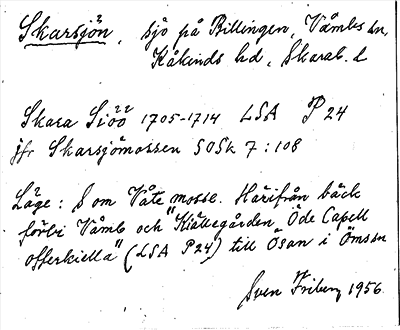 Skarsjön, sjö på Billingen, Våmbs sn,
Kåkinds hd, Skarab. l
Skara Siöö 1705-1714 LSA P 24
jfr Skarsjömossen SOSk 7:108
Läge: S om Våte mosse. Härifrån bäck
förbi Våmb och "Kiällegården Öde Capell
offerkiella" (LSA P24) till Ösan i Ömssn
Sven Friberg 1956